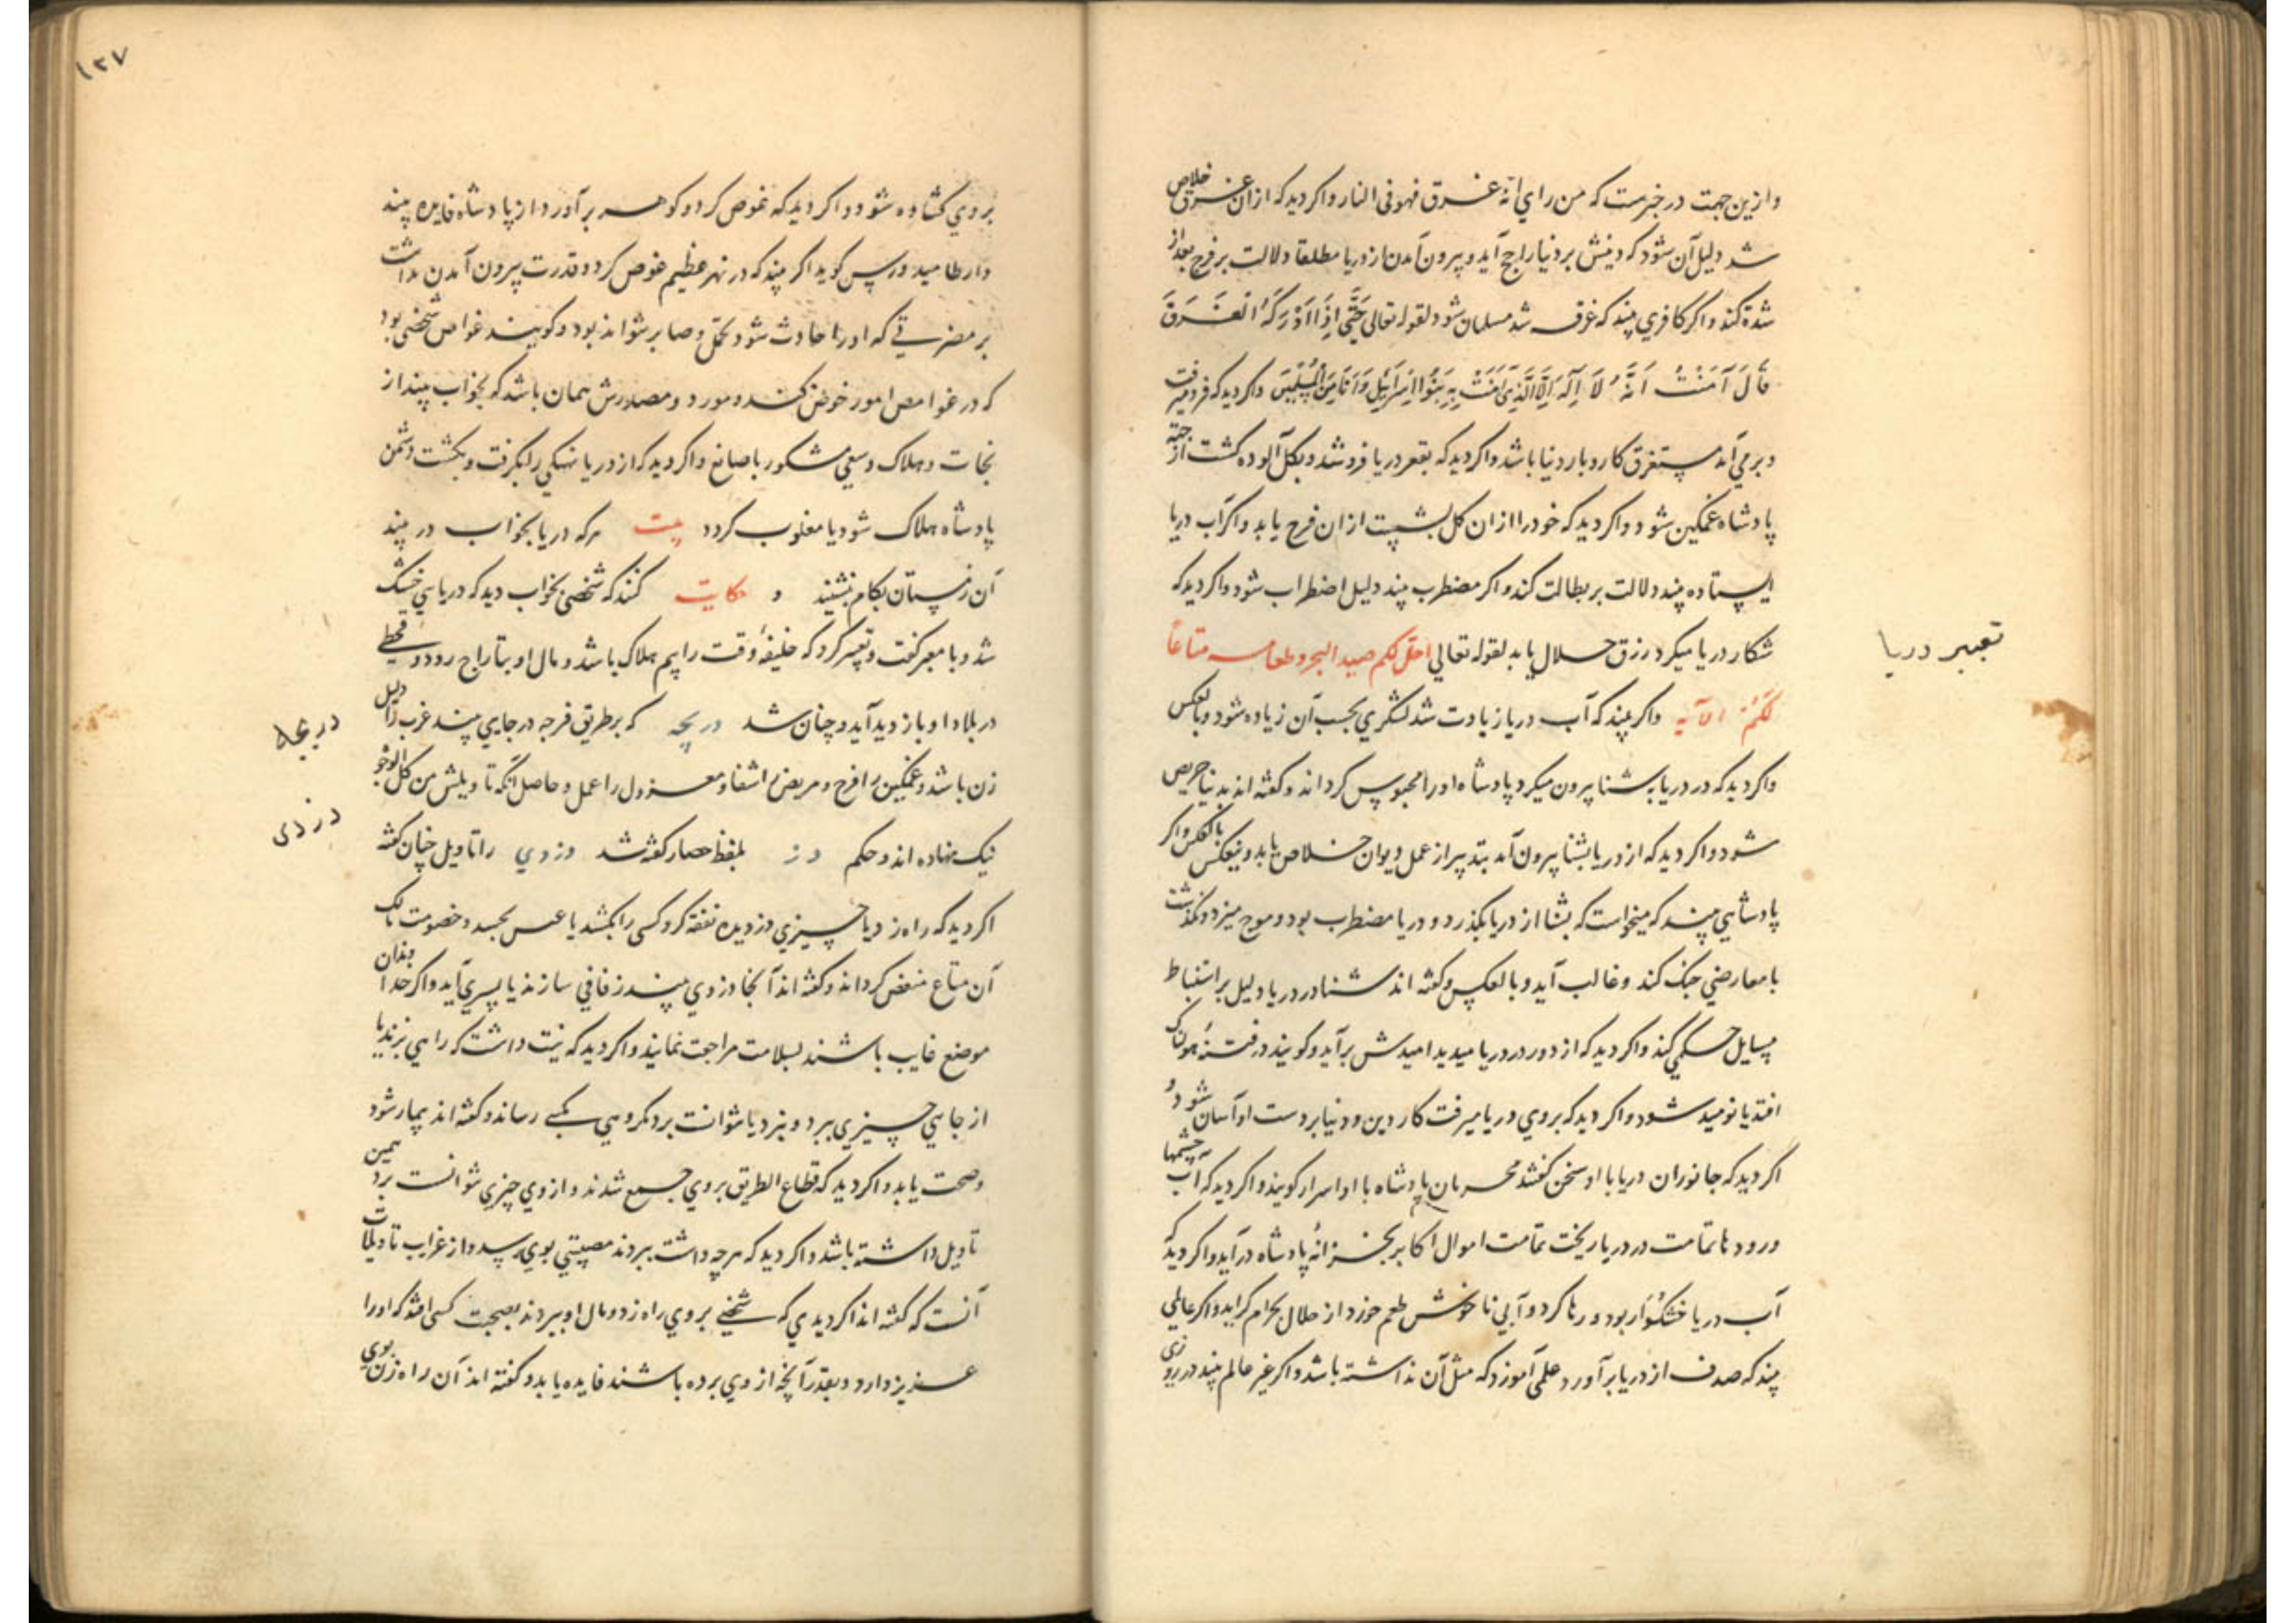 وازین جهت در خبرست که من رای انه غرق فهو فی النار واکر دید که ازان غرق خلاص
شد دلیل آن شود که دینش بر دنیا راجح آید و بیرون آمدن از دریا مطلقا دلالت بر فرج بعد از
شدة کند واکر کافری بیند که غرق شد مسلمان شود لقوله تعالی حَتَّی اِذَا اَدْرَکَهُ الْغَرَقَ
قَالَ آمَنْتُ اَنَّهُ لَا اِلَهَ اِلَّا الَّذِی آمَنَتْ بِهِ بَنُوا اِسْرَائِیلَ وَاَنَا مِنَ الْمُسْلِمِینَ واکر دید که فرو میرفت
و برمی آمد مستغرق کاروبار دنیا باشد واکر دید که بقعر دریا فرو شد و بکل آلوده کشت از جهة
پادشاه غمکین شود واکر دید که خود را ازان کل بشست ازان فرح یابد واکر آب دریا
ایستاده بیند دلالت بر بطالت کند واکر مضطرب بیند دلیل اضطراب شود واکر دید که
شکار دریا میکرد رزق حلال یابد لقوله تعالی احل لکم صید البحر وطعامه متاعا
لَکُمْ الآیه واکر بیند که آب دریا زیادت شد لشکری بحسب آن زیاده شود و بالعکس
تعبیر دریا
واکر دید که در دریا بشنا بیرون میکرد پادشاه او را محبوس کرداند و کفته اند بدنیا حریص
شود واکر دید که از دریا بشنا بیرون آمد بتدبیر از عمل دیوان خلاص یابد و بالعکس واکر
پادشاهی بیند که میخواست که بشنا از دریا بکذرد و دریا مضطرب بود و موج میزد و بکذشت
با معارضی جنک کند و غالب آید و بالعکس و کفته اند شنا در دریا دلیل بر استنباط
مسایل حکمی کند واکر دید که از دور در دریا میدید امیدش برآید و کویند در فتنهٔ هولناک
افتد یا نومید شود واکر دید که بروی دریا میرفت کار دین و دنیا بر دست او آسان شود و
اکر دید که جانوران دریا با او سخن کفتند محرمان پادشاه با او اسرار کویند واکر دید که آب چشمها
ورودها تمامت در دریا ریخت تمامت اموال اکابر بخزانهٔ پادشاه درآید واکر دید که
آب دریا خشکوار بود و رها کرد و آبی ناخوش طعم خورد از حلال بحرام کراید واکر عالمی
بیند که صدف از دریا برآورد علمی آموزد که مثل آن نداشته باشد واکر غیر عالم بیند در روزی
۱۲۷
بروی کشاده شود واکر دید که غوص کرد و کوهر برآورد از پادشاه فایده بیند
وارطامیدورس کوید اکر بیند که در نهر عظیم غوص کرد و قدرت بیرون آمدن نداشت
بر مضرتی که او را حادث شود تحمل و صابر نتواند بود و کویند غواص شخصی بود
که در غوامص امور خوض کند و مورد و مصدرش همان باشد که بخواب بیند از
نجات و هلاک وسعی مشکور با صانع واکر دید که از دریا نهنکی را بکرفت و بکشت دشمن
پادشاه هلاک شود یا مغلوب کردد بیت هرکه دریا بخواب در بیند
آن زمستان بکام بنشیند و حکایت کنند که شخصی بخواب دید که دریایی خشک
شد و با معبر کفت و تعبیر کرد که خلیفهٔ وقت را بیم هلاک باشد و مال او بتاراج رود و قحطی
در بلاد او بازدید آید و چنان شد دریچه که بر طریق فرجه در جایی بیند عزب را دلیل
دریچه
زن باشد و غمکین را فرح و مریض را شفا و معزول را عمل و حاصل آنکه تاویلش من کل الوجوه
نیک نهاده اند و حکم دز بلفظ حصار کفته شد دزدی را تاویل چنان کفته
دزدی
اکر دید که راه زد یا چیزی دزدیده نفقه کرد و کسی را بکشد یا عسس بجسد و خصومت مالک
آن متاع منغص کرداند و کفته اند آنجا دزدی بیند زفافی سازند یا پسری آید واکر خداوندان
موضع غایب باشند بسلامت مراجعت نمایند واکر دید که نیت داشت که راهی بزند یا
از جایی چیزی ببرد و نبرد یا نتوانست برد مکروهی بکسی رساند و کفته اند بیمار شود
وصحت یابد واکر دید که قطاع الطریق بروی جمع شدند و از وی چیزی نتوانست برد همین
تاویل داشته باشد واکر دید که هرچه داشت ببردند مصیبتی بوی رسد و از غرایب تاویلات
آنست که کفته اند اکر دیدی که شخصی بروی راه زد و مال او ببردند بصحبت کسی افتد که او را
عزیز دارد و بقدر آنچه از وی برده باشند فایده یابد و کفته اند آن راه زن بوی